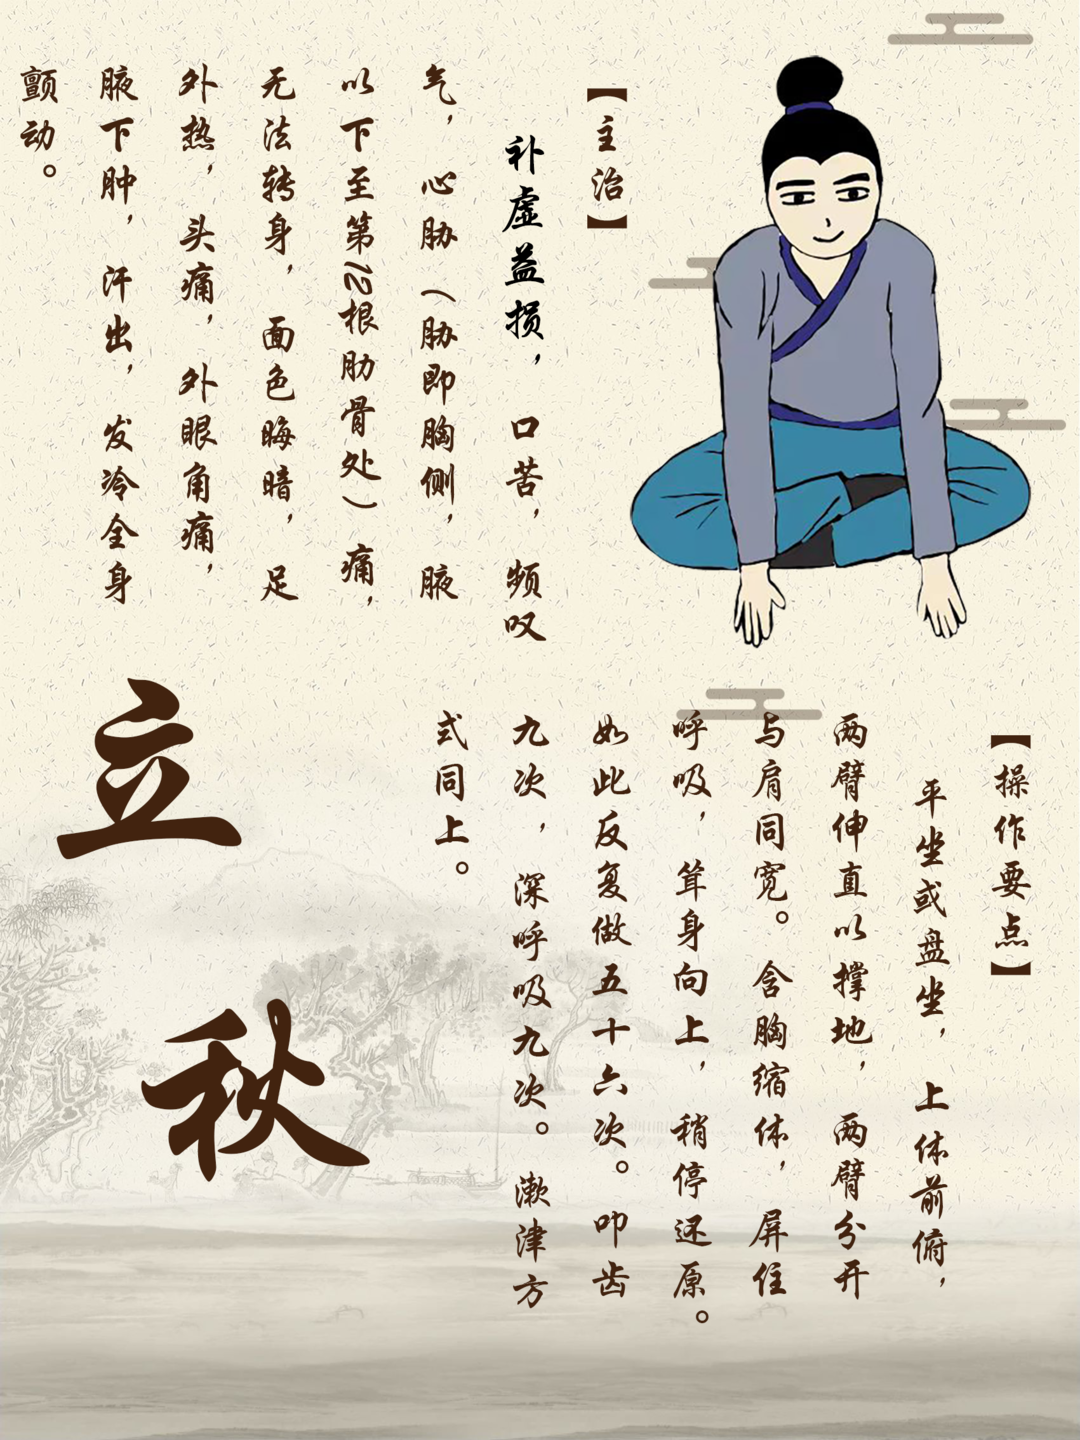 【主治】
补虚益损，口苦，频叹
气，心胁（胁即胸侧，腋
以下至第12根肋骨处）痛，
无法转身，面色晦暗，足
外热，头痛，外眼角痛，
腋下肿，汗出，发冷全身
颤动。
【操作要点】
平坐或盘坐，上体前俯，
两臂伸直以撑地，两臂分开
与肩同宽。含胸缩体，屏住
呼吸，耸身向上，稍停还原。
如此反复做五十六次。叩齿
九次，深呼吸九次。漱津方
式同上。
立秋